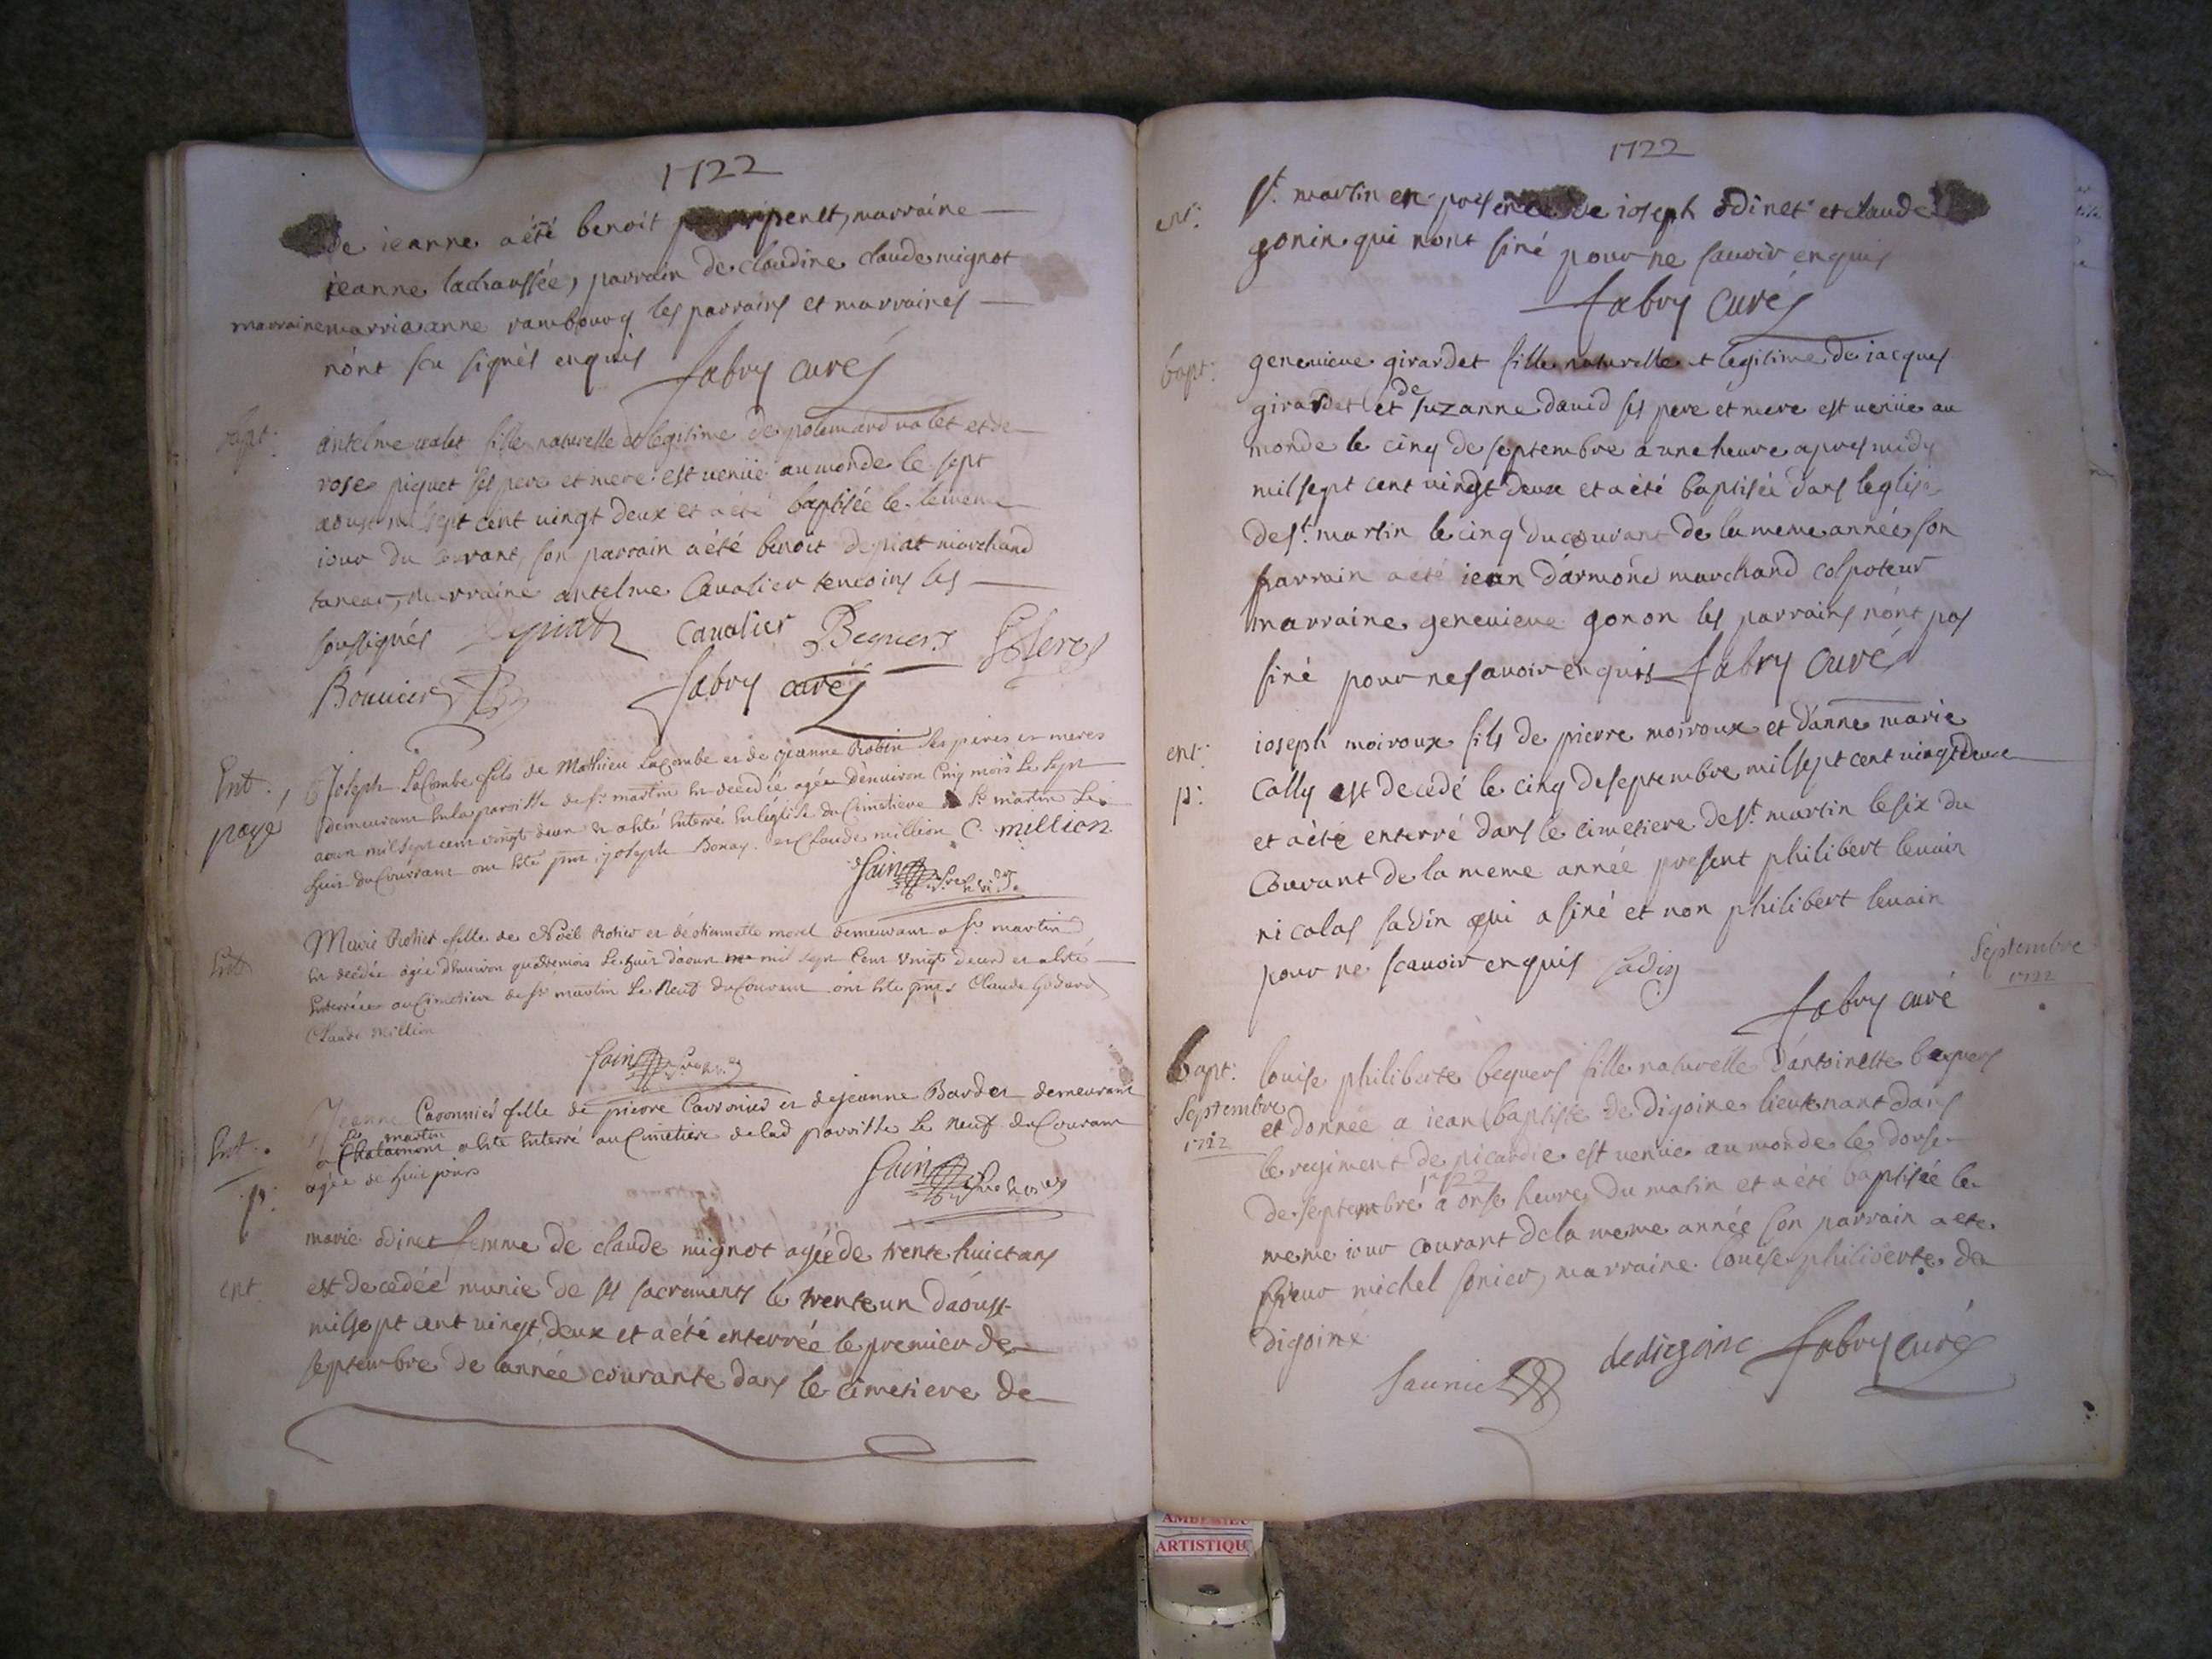 1722
de jeanne a été benoit marraine
jeanne lachaussée, parrain de claudine claude mignot
marraine marrianne rambourg les parrains et marraines
n'ont sçu signés enquis fabry curés
bapt:
antelme valet fille naturelle et legitime de polemard valet et de
rose piquet ses pere et mere est venüe au monde le sept
aoust mil sept cent vingt deux et a été baptisée le meme
iour du courant, son parrain a été benoit depiat marchand
taneur, marraine antelme Cavalier temoins les
soussignés Depiat Cavalier Beguers
Bouuier fabry curés
Ent.
payé
Joseph LaCombe fils de Mathieu Lacombe et de jeanne Robin ses peres et meres
demeurant en la parroisse de st martin est decedée agée d'enuiron Cinq mois Le sept
aoust mil sept cent vingt deux et a eté Enterré En léglise du Cimetiere st martin Le
huit du Courrant ont eté pnts joseph Bonay et Claude million C. million
Sain
Ent
Marie Rotier fille de Noël Rotier et d'estiennette morel demeurant a st martin
est decedée agée d'enuiron quatre mois Le huit d'aoust mil sept Cent vingt deux et a eté
Enterrée au Cimetiere de st martin Le Neuf du Courrant ont eté pnts Claude Godard
Claude million
Sain
Ent.
p:
Jeanne Caronnier fille de pierre Carronier et de jeanne Bardet demeurant
st martin
a Chalamont a eté Enterré au Cimetiere de lad parroisse Le Neuf du Courant
agée de huit jours
Sain
ent
marie odinet femme de claude mignot agée de trente huict ans
est decedée munie de ses sacrements le trente un d'aoust
mil sept cent vingt deux et a été enterrée le premier de
septembre de l'année courante dans le cimetiere de
1722
ent:
st. martin en presence de ioseph odinet et claude
gonin qui n'ont siné pour ne sauoir enquis
fabry curés
bapt:
geneuieue girardet fille naturelle et legitime de iacques
girardet et de suzanne dauid ses pere et mere est venüe au
monde le cinq de septembre a une heure apres midy
mil sept cent vingt deux et a été baptisée dans l'eglise
de st. martin le cinq du courant de la meme année son
parrain a été iean d'armond marchand colpoteur
marraine geneuieue gonon les parrains n'ont pas
siné pour ne sauoir enquis fabry curés
ent:
p:
ioseph moiroux fils de pierre moiroux et d'anne marie
Cally est decedé le cinq de septembre mil sept cent vingt deux
et a été enterré dans le cimetiere de st. martin le six du
Courant de la meme année present philibert leuain
nicolas sadin qui a siné et non philibert leuain
pour ne scauoir enquis Sadin
fabry curé
Septembre
1722
bapt:
Septembre
1722
louise philiberte beguers fille naturelle d'antoinette beguers
et donnée a iean baptiste de digoine lieutenant dans
le regiment de picardie est venüe au monde le douse
1722
de septembre a onse heures du matin et a été baptisée le
meme iour courant de la meme année son parrain a ete
sieur michel sonier, marraine louise philiberte de
digoine
Saunier dedigoine fabry curés
AMBERIEU
ARTISTIQU